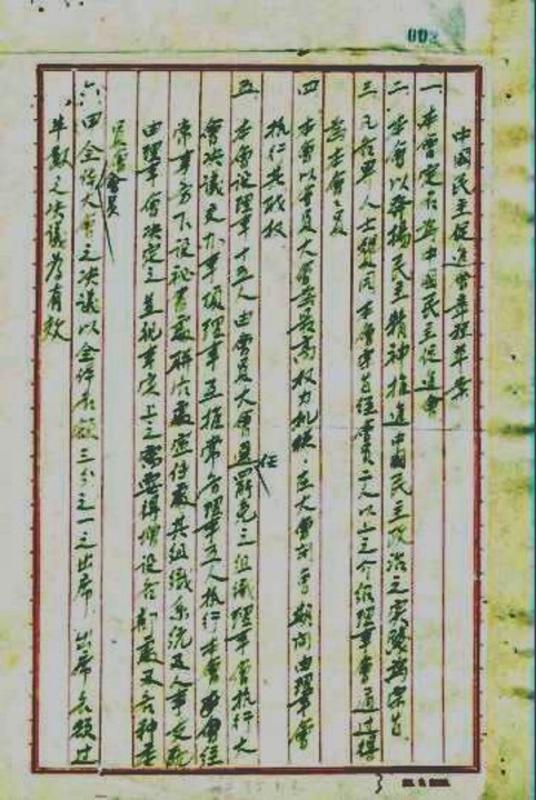 中國民主促進會章程草案
一、本會定名為中國民主促進會
二、本會以發揚民主精神推進中國民主政治之實踐為宗旨
三、凡各界人士贊同本會宗旨經會員二人以上之介紹理事會通過得
為本會會員
四、本會以會員大會為最高權力機構，在大會閉會期間由理事會
執行其職權
五、本會設理事十五人由會員大會選任罷免之組織理事會執行大
會決議更本事項理事互推常務理事五人執行本會會經
常事務下設秘書處研究處宣傳處其組織系統及人事支配
由理事會決定之並視事實上之需要得增設各部處及各種委
員會
會員
六、四全體大會之決議以全體名額三分之一之出席出席名額過
半數之決議為有效
002
3